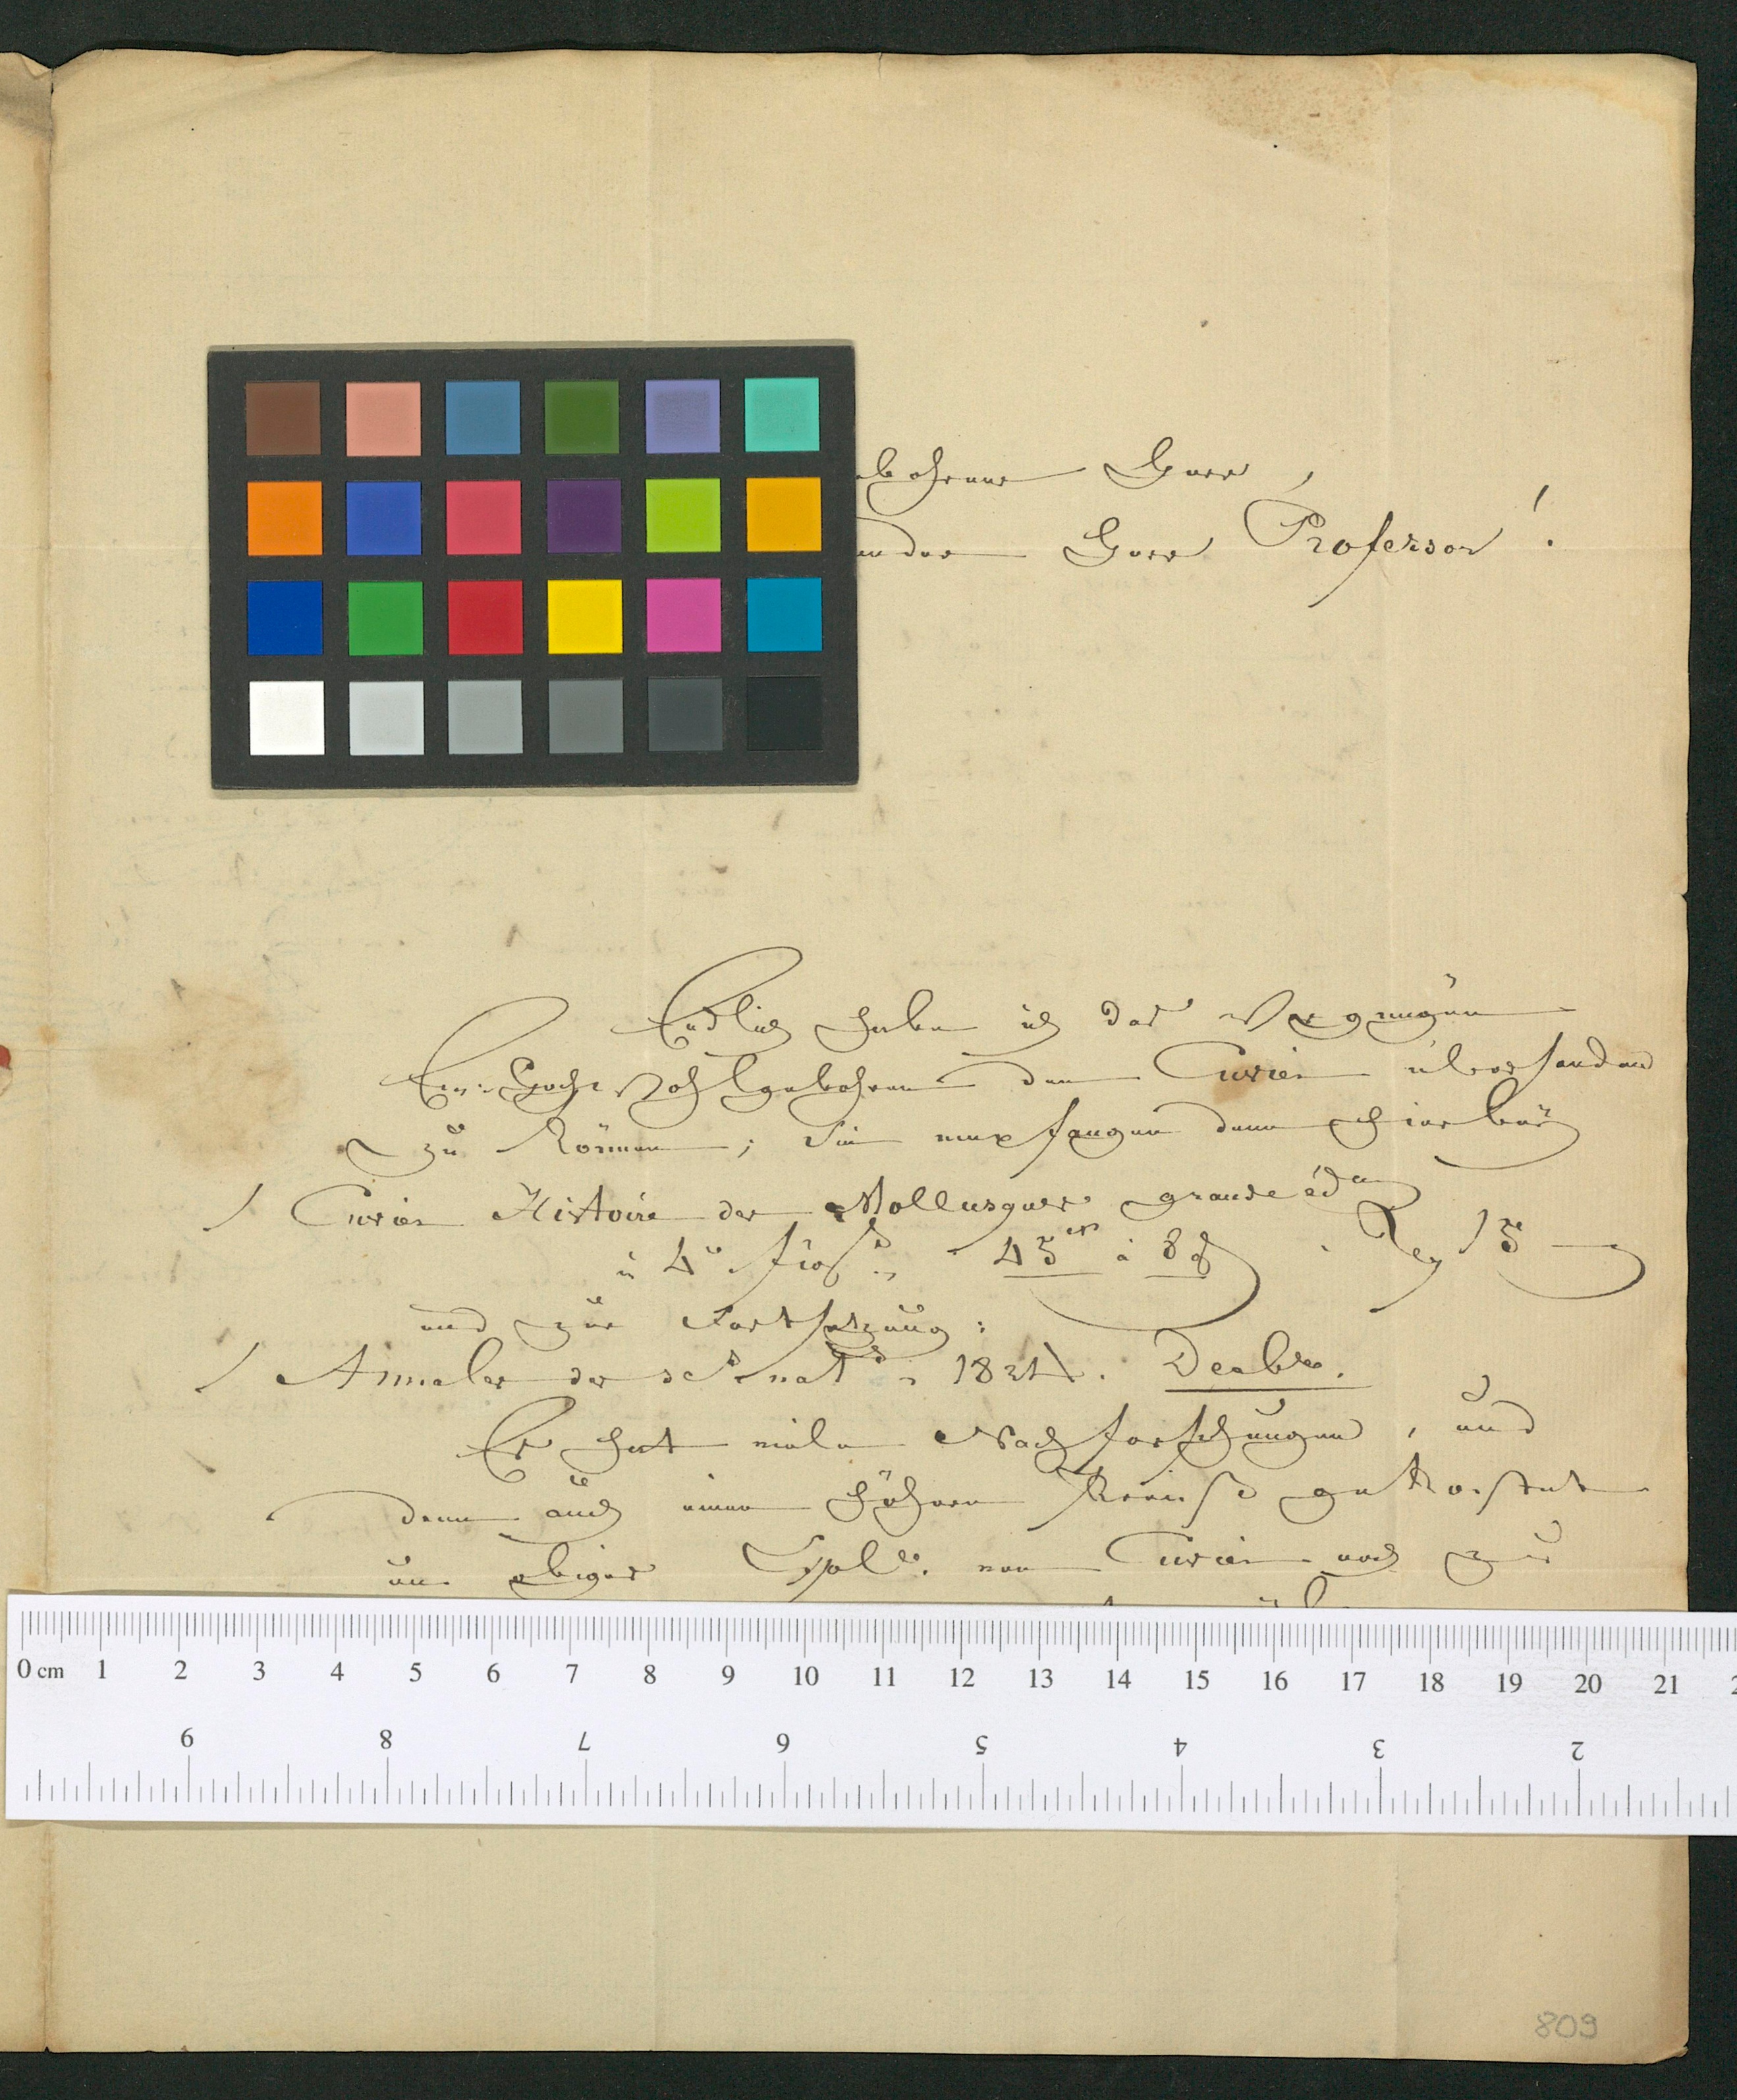 bohrner Herr,
nder Herr Professor!
Endlich habe ich das Vergnügen
Ew: Hochwohlgebohren den Cuvier übersenden
zu können; Sie empfangen denn hierbeÿ
1 Cuvier Histoire des Mollusques grande éd
in 4° 45 à 8 15
und zur Fortsetzung:
1 Annales des sc. nat 1824. Decbr.
Es hat viele Nachforschungen, und
denn auch einen höhern Preiß gekostet
um obiges Expl. von Cuvier noch zur
0 cm 1 2 3 4 5 6 7 8 9 10 11 12 13 14 15 16 17 18 19 20 21
9 8 7 6 5 4 3 2
809